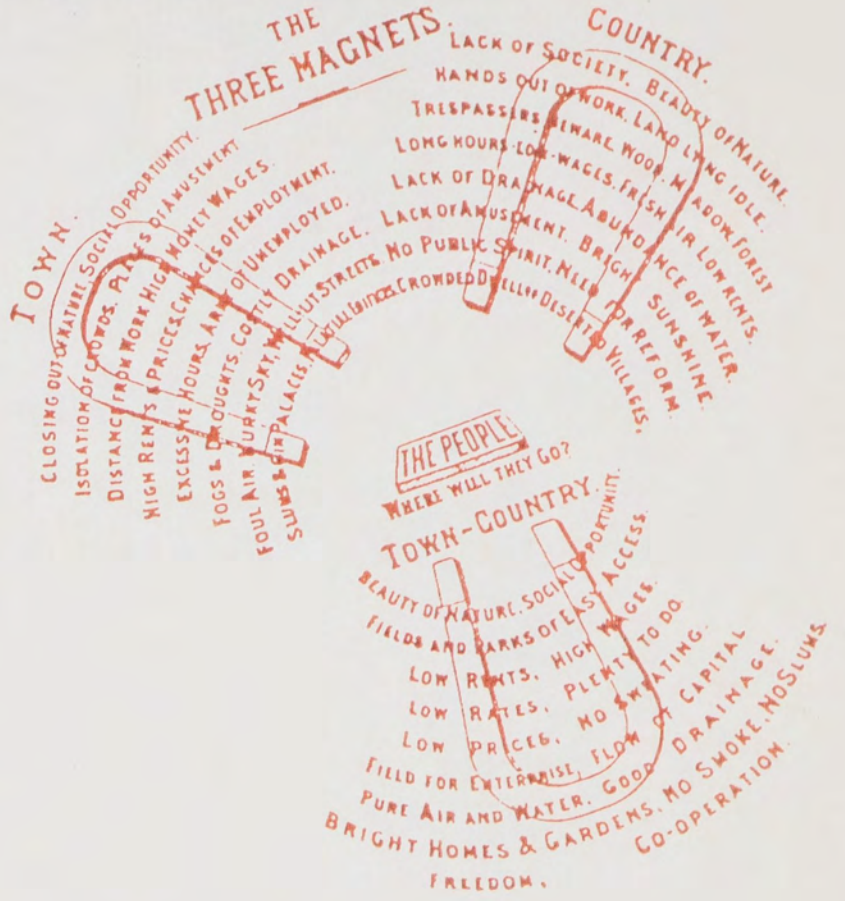 THE
THREE MAGNETS.
TOWN.
CLOSING OUT OF NATURE. SOCIAL OPPORTUNITY.
ISOLATION OF CROWDS. PLACES OF AMUSEMENT
DISTANCE FROM WORK HIGH MONEY WAGES.
HIGH RENTS & PRICES. CHANCES OF EMPLOYMENT.
EXCESSIVE HOURS. ARMY OF UNEMPLOYED.
FOGS & DROUGHTS. COSTLY DRAINAGE.
FOUL AIR. MURKY SKY. WELL-LIT STREETS.
SLUMS & GIN PALACES. EDIFICES.
COUNTRY.
LACK OF SOCIETY. BEAUTY OF NATURE.
HANDS OUT OF WORK. LAND LYING IDLE.
TRESPASSERS BEWARE. WOOD, MEADOW, FOREST
LONG HOURS-LOW-WAGES. FRESH AIR LOW RENTS.
LACK OF DRAINAGE. ABUNDANCE OF WATER.
LACK OF AMUSEMENT. BRIGHT SUNSHINE.
NO PUBLIC SPIRIT. NEED FOR REFORM.
CROWDED DWELLGS DESERTED VILLAGES.
THE PEOPLE
WHERE WILL THEY GO?
TOWN-COUNTRY.
BEAUTY OF NATURE. SOCIAL OPPORTUNITY.
FIELDS AND PARKS OF EASY ACCESS.
LOW RENTS, HIGH WAGES.
LOW RATES, PLENTY TO DO.
LOW PRICES, NO SWEATING.
FIELD FOR ENTERPRISE, FLOW OF CAPITAL
PURE AIR AND WATER. GOOD DRAINAGE.
BRIGHT HOMES & GARDENS. NO SMOKE, NO SLUMS.
FREEDOM. CO-OPERATION.